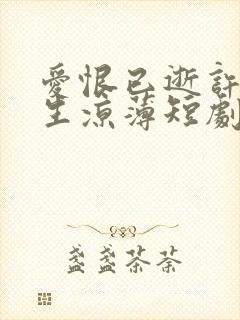 愛恨已逝許
生涼薄短劇
盞盞茶茶